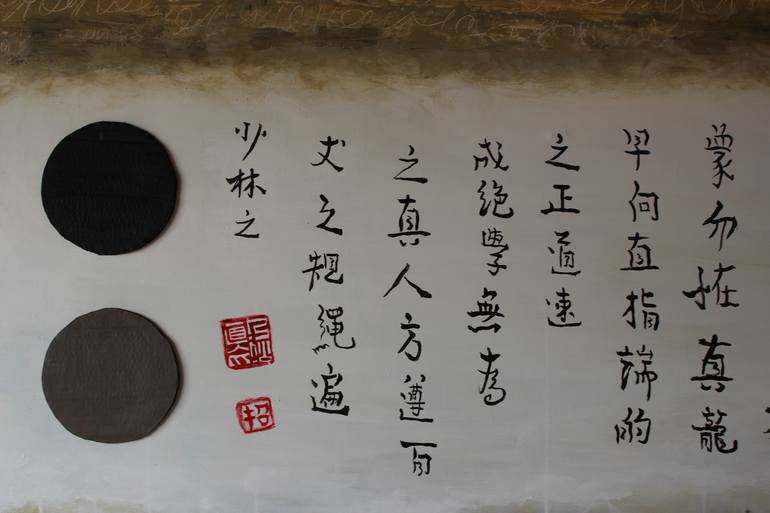 象勿恠真龍
早向直指端的
之正道速
成絶學無為
之真人方遵百
丈之規繩遍
少林之
招